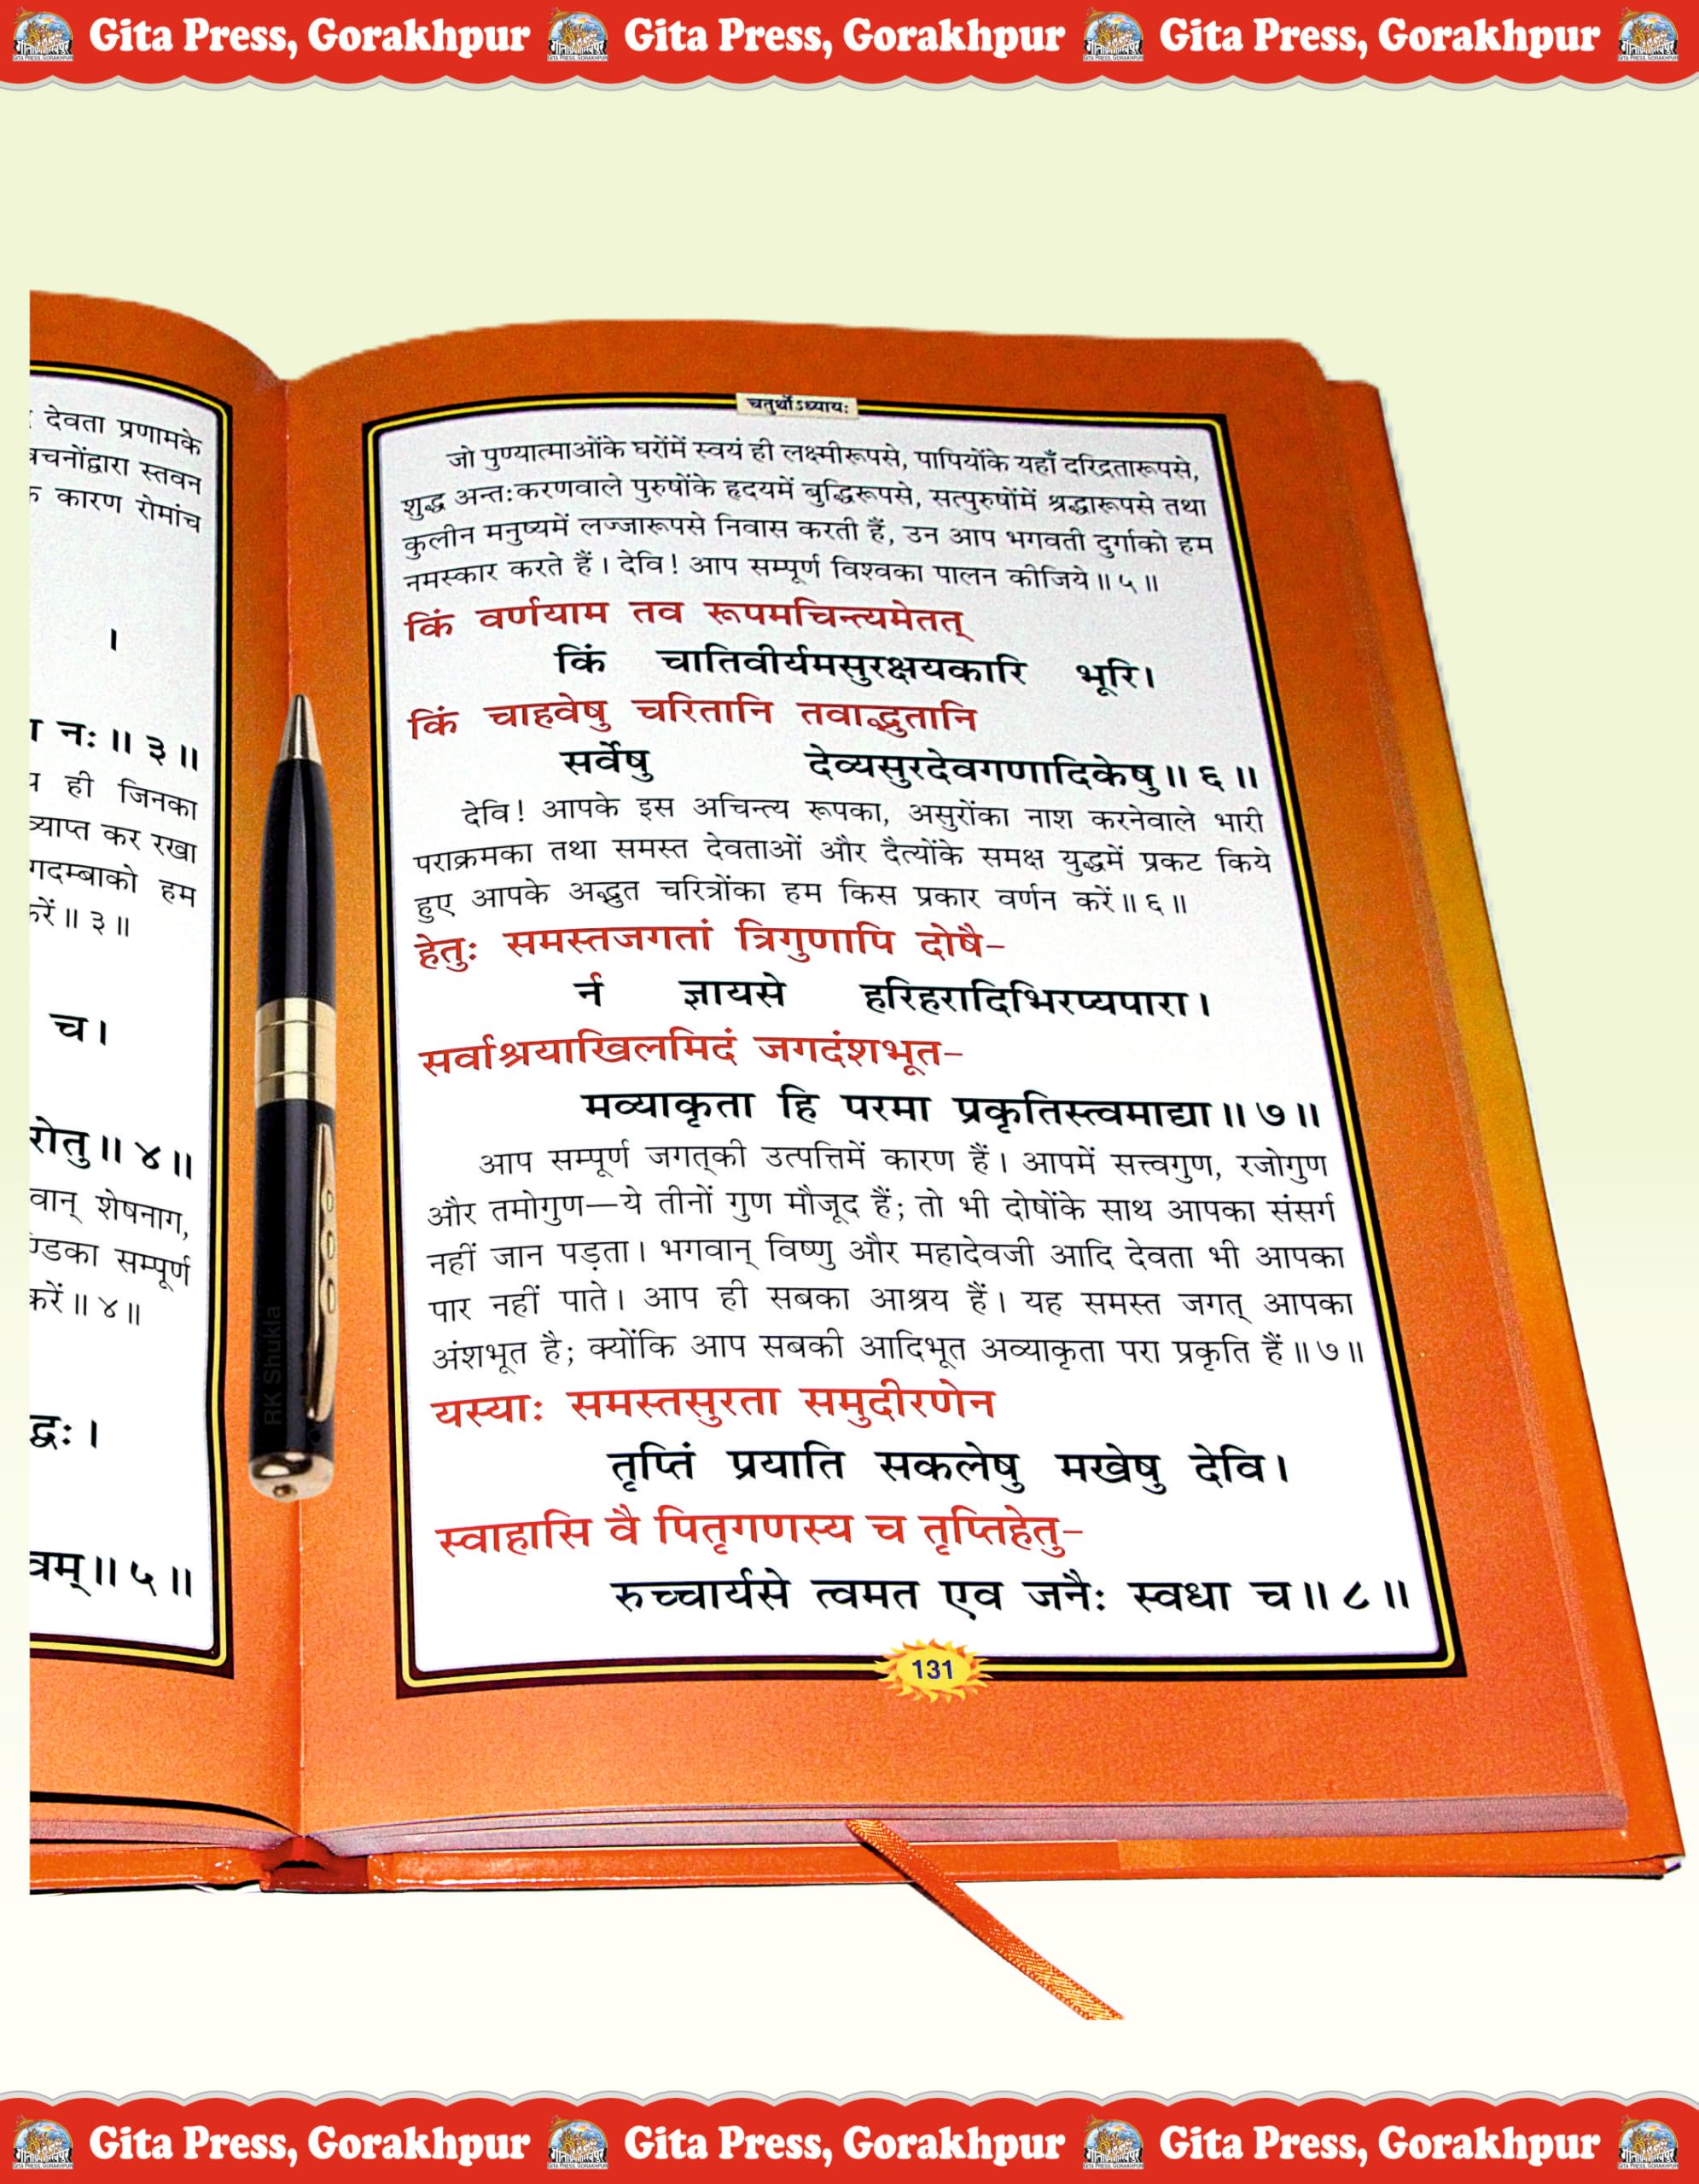 Gita Press, Gorakhpur Gita Press, Gorakhpur Gita Press, Gorakhpur
देवता प्रणामके
वचनोंद्वारा स्तवन
कारण रोमांच
।
नः॥ ३॥
ही जिनका
व्याप्त कर रखा
हम
॥ ३॥
च।
॥ ४॥
शेषनाग,
सम्पूर्ण
करें॥ ४॥
द्धः।
॥ ५॥
चतुर्थोऽध्यायः
जो पुण्यात्माओंके घरोंमें स्वयं ही लक्ष्मीरूपसे, पापियोंके यहाँ दरिद्रतारूपसे,
शुद्ध अन्तःकरणवाले पुरुषोंके हृदयमें बुद्धिरूपसे, सत्पुरुषोंमें श्रद्धारूपसे तथा
कुलीन मनुष्यमें लज्जारूपसे निवास करती हैं, उन आप भगवती दुर्गाको हम
नमस्कार करते हैं। देवि! आप सम्पूर्ण विश्वका पालन कीजिये॥ ५॥
किं वर्णयाम तव रूपमचिन्त्यमेतत्
किं चातिवीर्यमसुरक्षयकारि भूरि।
किं चाहवेषु चरितानि तवाद्भुतानि
सर्वेषु देव्यसुरदेवगणादिकेषु॥ ६॥
देवि! आपके इस अचिन्त्य रूपका, असुरोंका नाश करनेवाले भारी
पराक्रमका तथा समस्त देवताओं और दैत्योंके समक्ष युद्धमें प्रकट किये
हुए आपके अद्भुत चरित्रोंका हम किस प्रकार वर्णन करें॥ ६॥
हेतुः समस्तजगतां त्रिगुणापि दोषै-
र्न ज्ञायसे हरिहरादिभिरप्यपारा।
सर्वाश्रयाखिलमिदं जगदंशभूत-
मव्याकृता हि परमा प्रकृतिस्त्वमाद्या॥ ७॥
आप सम्पूर्ण जगत्की उत्पत्तिमें कारण हैं। आपमें सत्त्वगुण, रजोगुण
और तमोगुण—ये तीनों गुण मौजूद हैं; तो भी दोषोंके साथ आपका संसर्ग
नहीं जान पड़ता। भगवान् विष्णु और महादेवजी आदि देवता भी आपका
पार नहीं पाते। आप ही सबका आश्रय हैं। यह समस्त जगत् आपका
अंशभूत है; क्योंकि आप सबकी आदिभूत अव्याकृता परा प्रकृति हैं॥ ७॥
यस्याः समस्तसुरता समुदीरणेन
तृप्तिं प्रयाति सकलेषु मखेषु देवि।
स्वाहासि वै पितृगणस्य च तृप्तिहेतु-
रुच्चार्यसे त्वमत एव जनैः स्वधा च॥ ८॥
131
RK Shukla
Gita Press, Gorakhpur Gita Press, Gorakhpur Gita Press, Gorakhpur